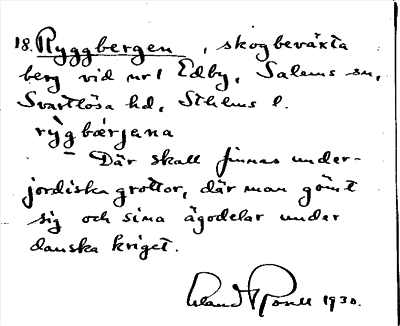 18. Ryggbergen, skogbeväxta
berg vid nr 1 Edby, Salems sn,
Svartlösa hd, Sthlms l.
rỳgbǽrjena
– Där skall finnas under-
jordiska grottor, där man gömt
sig och sina ägodelar under
danska kriget.
1930.